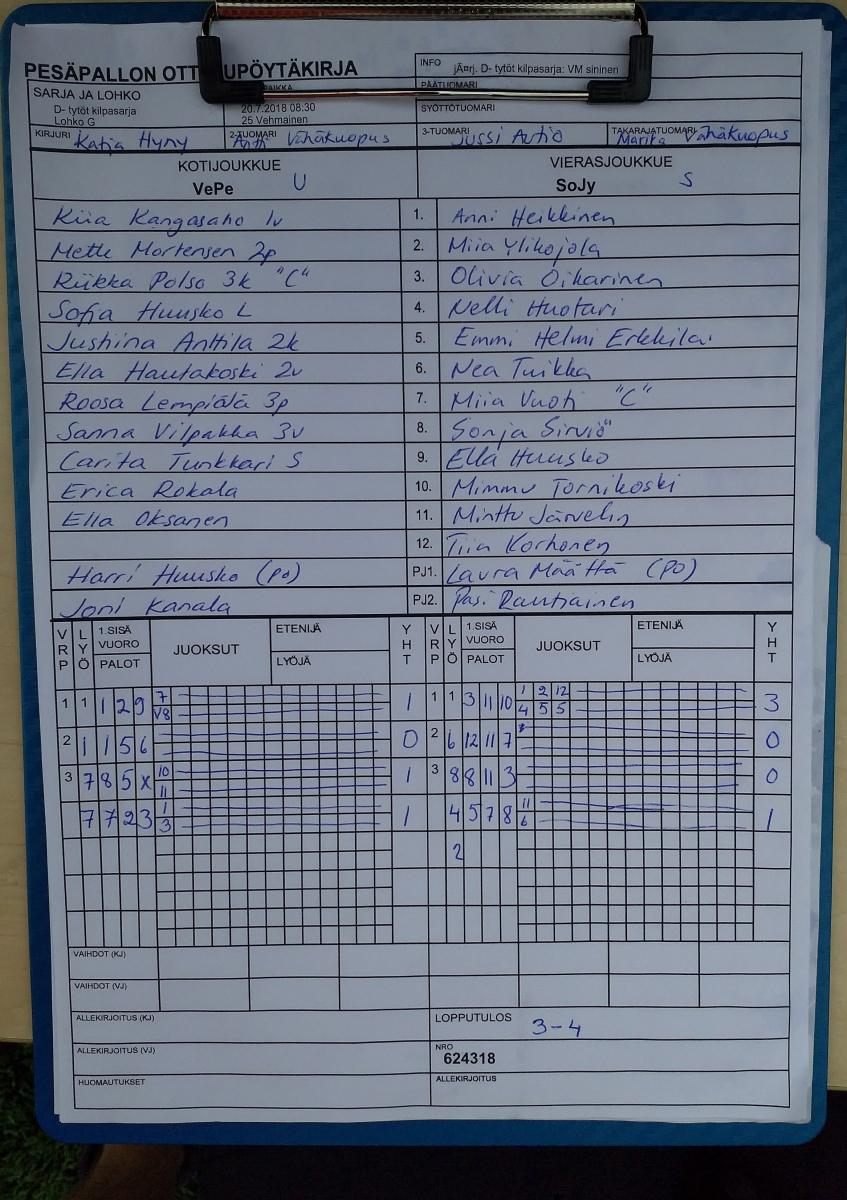 PESÄPALLON OTT UPÖYTÄKIRJA
INFO jÃ¤rj. D- tytöt kilpasarja: VM sininen
PÄÄTUOMARI
SARJA JA LOHKO
D- tytöt kilpasarja
Lohko G
20.7.2018 08:30
25 Vehmainen
SYÖTTÖTUOMARI
KIRJURI Katja Hyny
2-TUOMARI Antti Vähäkuopus
3-TUOMARI Jussi Autio
TAKARAJATUOMARI Marika Vähäkuopus
KOTIJOUKKUE
VePe U
VIERASJOUKKUE
SoJy S
Kiia Kangasaho 1v 1. Anni Heikkinen
Mette Mortensen 2p 2. Miia Ylikojola
Riikka Polso 3k "C" 3. Olivia Oikarinen
Sofia Huusko L 4. Nelli Huotari
Justiina Anttila 2k 5. Emmi Helmi Erkkilä
Ella Hautakoski 2v 6. Nea Tuikka
Roosa Lempiälä 3p 7. Miia Vuoti "C"
Sanna Vilpakka 3v 8. Sonja Sirviö
Carita Tunkkari S 9. Ella Huusko
Erica Rokala 10. Mimmu Tornikoski
Ella Oksanen 11. Minttu Järvelin
12. Tiia Korhonen
Harri Huusko (PO) PJ1. Laura Määttä (PO)
Joni Kanala PJ2. Pasi Rautiainen
VRP LYÖ 1.SISÄ VUORO PALOT JUOKSUT ETENIJÄ LYÖJÄ YHT VRP LYÖ 1.SISÄ VUORO PALOT JUOKSUT ETENIJÄ LYÖJÄ YHT
1 1 1 2 9 7 1 1 1 3 11 10 1 2 12 3
V8 4 5 5
2 1 1 5 6 0 2 6 12 11 7 0
3 7 8 5 x 10 1 3 8 8 11 3 0
11
7 7 2 3 1 1 4 5 7 8 11 1
3 6
2
VAIHDOT (KJ)
VAIHDOT (VJ)
ALLEKIRJOITUS (KJ)
LOPPUTULOS 3-4
ALLEKIRJOITUS (VJ)
NRO
624318
HUOMAUTUKSET
ALLEKIRJOITUS